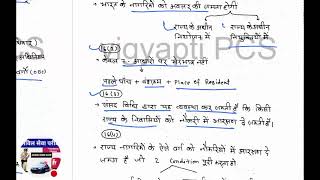 भारत के नागरिकों को अवसर की समता होगी
राज्य के अधीन नियोजन में
राज्य के अधीन नियुक्तियों में
vigyapti PCS
16(2)
केवल 7 आधारों पर भेदभाव नहीं
पहले पाँच + वंशक्रम + Place of Resident
16(3)
संसद विधि द्वारा यह व्यवस्था कर सकती है कि किसी
राज्य के निवासियों को नौकरी में आरक्षण दे सकती है।
16(4)
राज्य नागरिकों के ऐसे वर्ग को नौकरियों में आरक्षण दे
सकता है जो 2 Condition पूरी करता हो
(OBC)